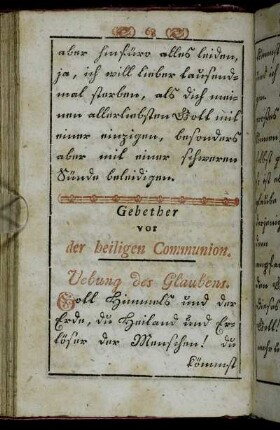 aber hinfüro alles leiden,
ja, ich will lieber tausend-
mal sterben, als dich mei-
nen allerliebsten Gott mit
einer einzigen, besonders
aber mit einer schweren
Sünde beleidigen.
Gebether
vor
der heiligen Communion.
Uebung des Glaubens.
Gott Himmels und der
Erde, du Heiland und Er-
löser der Menschen! du
kömmst